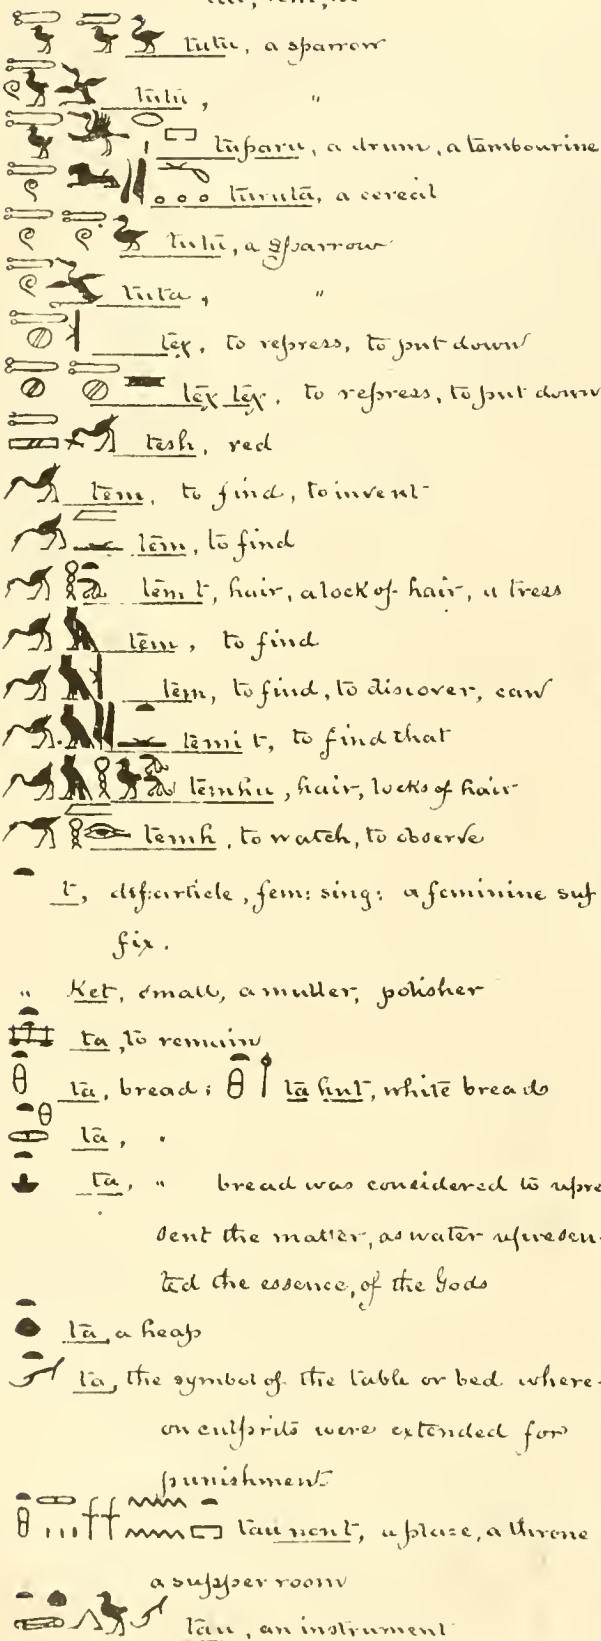 tutu, a sparrow
tutu, "
tuparu, a drum, a tambourine
turuta, a cereal
tutu, a sparrow
tuta, "
tex, to repress, to put down
tex tex, to repress, to put down
tesh, red
tem, to find, to invent
tem, to find
tem t, hair, a lock of hair, a tress
tem, to find
tem, to find, to discover, can
temi t, to find that
temhu, hair, locks of hair
temh, to watch, to observe
t, def: article, fem: sing: a feminine suf
fix.
" Ket, small, a muller, polisher
ta, to remain
ta, bread; ta hut, white breads
ta, "
ta, " bread was considered to repre
sent the matter, as water represen-
ted the essence, of the Gods
ta, a heap
ta, the symbol of the table or bed where-
on culprits were extended for
punishment
tau nent, a place, a throne
a supper room
tau, an instrument